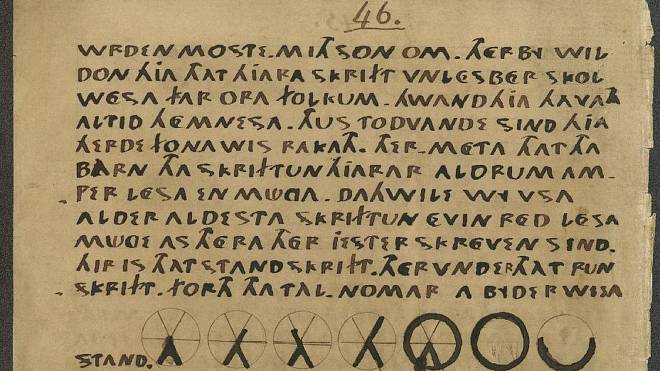 46.
WRDEN MOSTE. MITH SON OM. THERBY WIL
DON HIA THAT HIARA SKRIFT VNLESBER SKOL
WESA FAR ORA FOLKUM. HWAND HIA HAVATH
ALTID HEMNESA. THUS TODVANDE SIND HIA
HERDE FON A WIS RAKATH. THER META THAT THA
BARN THA SKRIFTUN HIARAR ALDRUM AM
PER LESA EN MUGA. DAHWILE WY VSA
ALDER ALDESTA SKRIFTUN EVIN RED LESA
MUGE AS THERA THER IESTER SKREVEN SIND.
HIR IS THAT STANDSKRIFT. THERVNDER THAT RUN
SKRIFT. FORTH THA TAL. NOMAR A BYDER WISA
STAND.